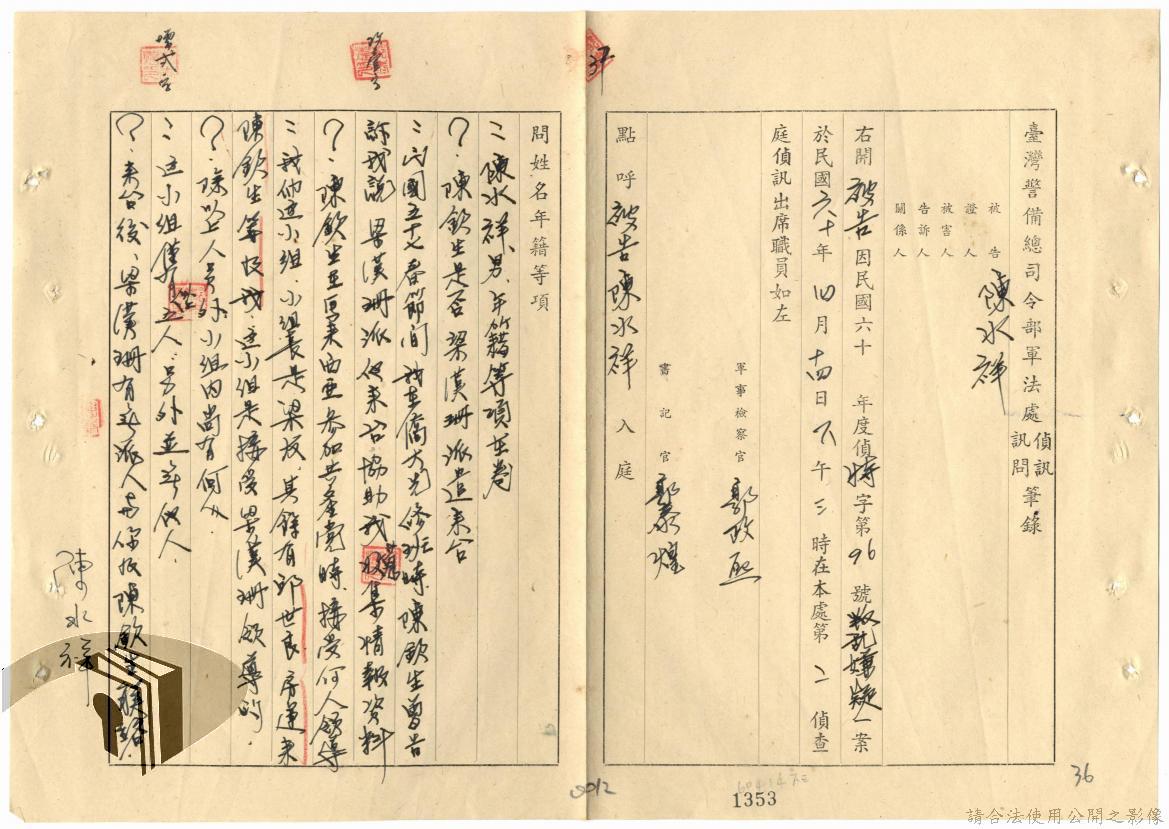 臺灣警備總司令部軍法處偵訊訊問筆錄
被告
證人
被害人
告訴人
關係人
陳水祥
右開被告因民國六十年度偵特字第96號叛乱嫌疑一案
於民國六十年四月十四日下午三時在本處第二偵查
庭偵訊出席職員如左
軍事檢察官 郭政熙
書記官 郭泰煌
點呼被告陳水祥入庭
問姓名年籍等項
陳水祥、男、年籍等項在卷
?陳欽生是否梁漢珊派遣來台
民國五十七春節間我在僑大先修班時陳欽生曾告
訴我說梁漢珊派他來台協助我收集情報資料
?陳欽生在馬來西亞參加共產黨時接受何人領導
我他這小組,小組長是梁漢,其餘有邱世良房運來
陳欽生等及我這小組是接受梁漢珊領導的.
?除以上人員外小組內尚有何人
這小組僅有五人,另外並無他人.
?來台後、梁漢珊有無派人與你及陳欽生聯絡.
陳水祥
37
36
0012
1353
請合法使用公開之影像